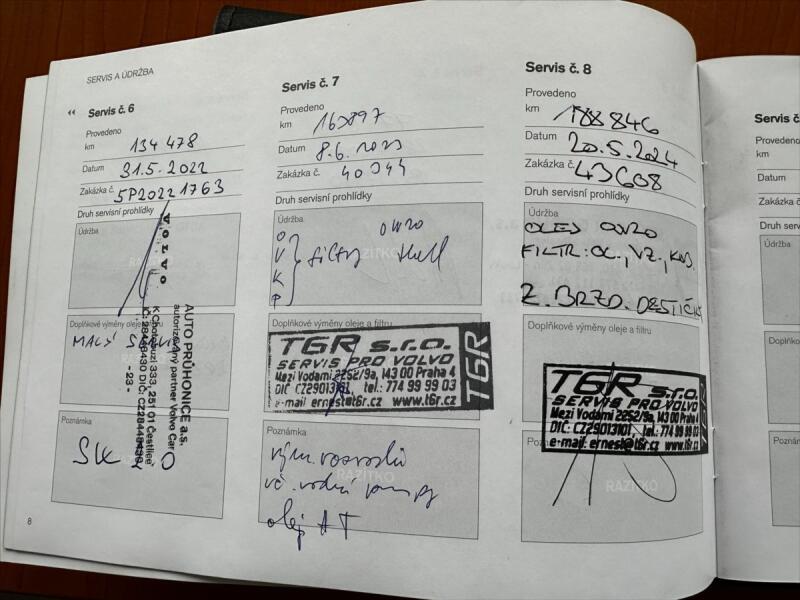 SERVIS A ÚDRŽBA
Servis č. 6
Provedeno
km 134 478
Datum 31.5.2022
Zakázka č. SP2022 1763
Druh servisní prohlídky
Údržba
VOLVO
Doplňkové výměny oleje a filtru
MALÝ SERVIS
AUTO PRŮHONICE a.s.
autorizovaný partner Volvo Car
K Chotobuzi 333, 251 01 Čestlice
-23-
Poznámka
8
Servis č. 7
Provedeno
km 163897
Datum 8.6.2023
Zakázka č. 40344
Druh servisní prohlídky
Údržba
0W20
O
V
K
P
filtry Shell
RAZÍTKO
Doplňkové výměny oleje a filtru
T6R s.r.o.
SERVIS PRO VOLVO
Mezi Vodami 2252/9a, 143 00 Praha 4
DIČ CZ29013101, tel.: 774 99 99 03
e-mail ernest@t6r.cz www.t6r.cz
T6R
Poznámka
vým. rozvodů
vč. vodní pumpy
olej AT
Servis č. 8
Provedeno
km 188 846
Datum 20.5.2024
Zakázka č. 43608
Druh servisní prohlídky
Údržba
OLEJ 0W20
FILTR: OL., VZ., KAB.
Z. BRZD. DESTIČKY
Doplňkové výměny oleje a filtru
T6R s.r.o.
SERVIS PRO VOLVO
Mezi Vodami 2252/9a, 143 00 Praha
DIČ: CZ29013101, tel.: 774 99 99 03
e-mail: ernest@t6r.cz www.t6r.cz
RAZÍTKO
Servis č.
Provedeno
km
Datum
Zakázka č.
Druh servisní
Údržba
Doplňkové
Poznámka